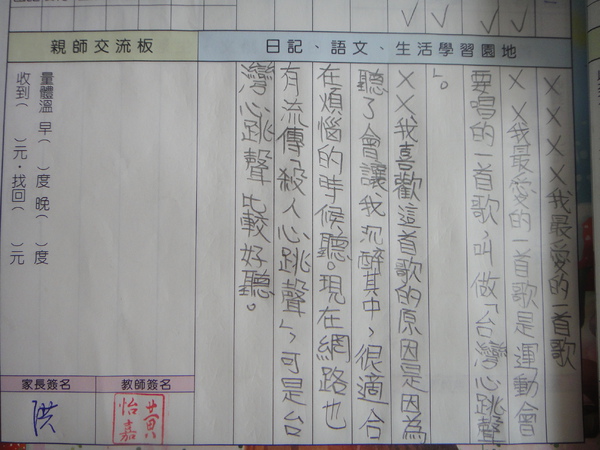 日記、語文、生活學習園地
××××我最愛的一首歌
××我最愛的一首歌是運動會
要唱的一首歌,叫做「台灣心跳聲
」。
××我喜歡這首歌的原因是因為
聽了會讓我沉醉其中,很適合
在煩惱的時候聽。現在網路也
有流傳「殺人心跳聲」,可是台
灣心跳聲比較好聽。
親師交流板
量體溫 早( )度 晚( )度
收到( )元.找回( )元
教師簽名
黃怡嘉
家長簽名
洪